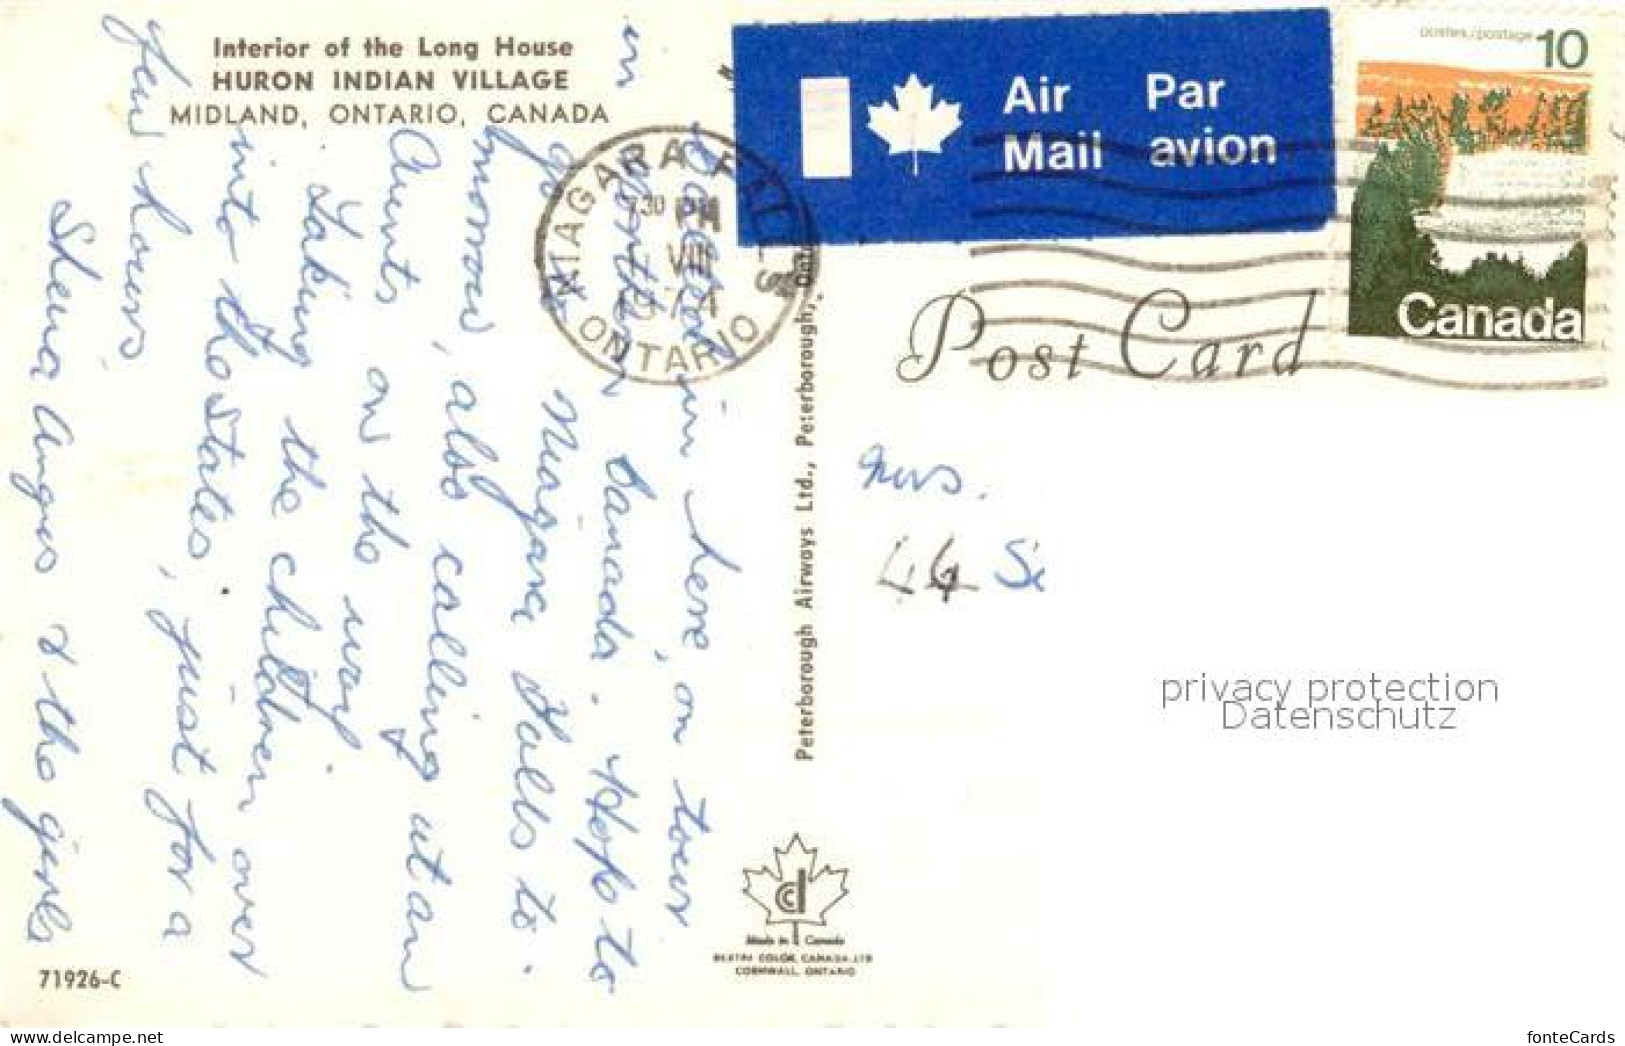 Interior of the Long House
HURON INDIAN VILLAGE
MIDLAND, ONTARIO, CANADA
Called in here, on tour
in Northern Canada. Hope to
go Niagara Falls to.
morrow, also calling at an
Aunts on the way
Taking the children over
into the States, just for a
few hours
Shena Angus & the girls
71926-C
NIAGARA FALLS
7 30 PM
VIII
1974
ONTARIO
Air Mail
Par avion
postes/postage 10
Canada
Post Card
Peterborough Airways Ltd., Peterborough, Ont.
Mrs.
44 S
privacy protection
Datenschutz
Made in Canada
COLOR CANADA LTD
CORNWALL, ONTARIO
delcampe.net
fonteCards